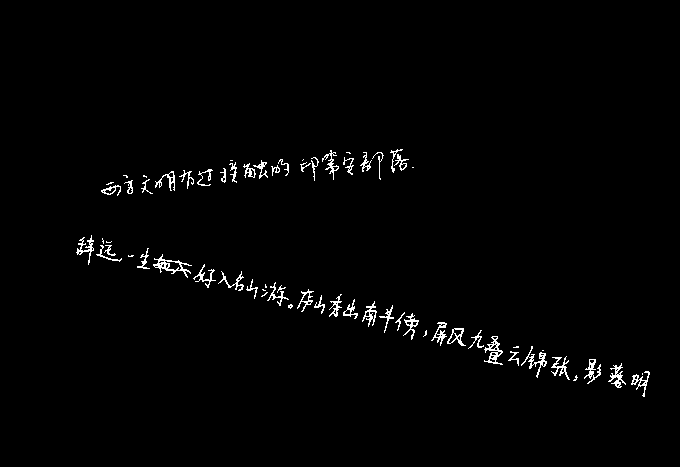 西方文明有过接触的印第安部落.
辞远一生好入名山游。庐山秀出南斗傍，屏风九叠云锦张，影落明